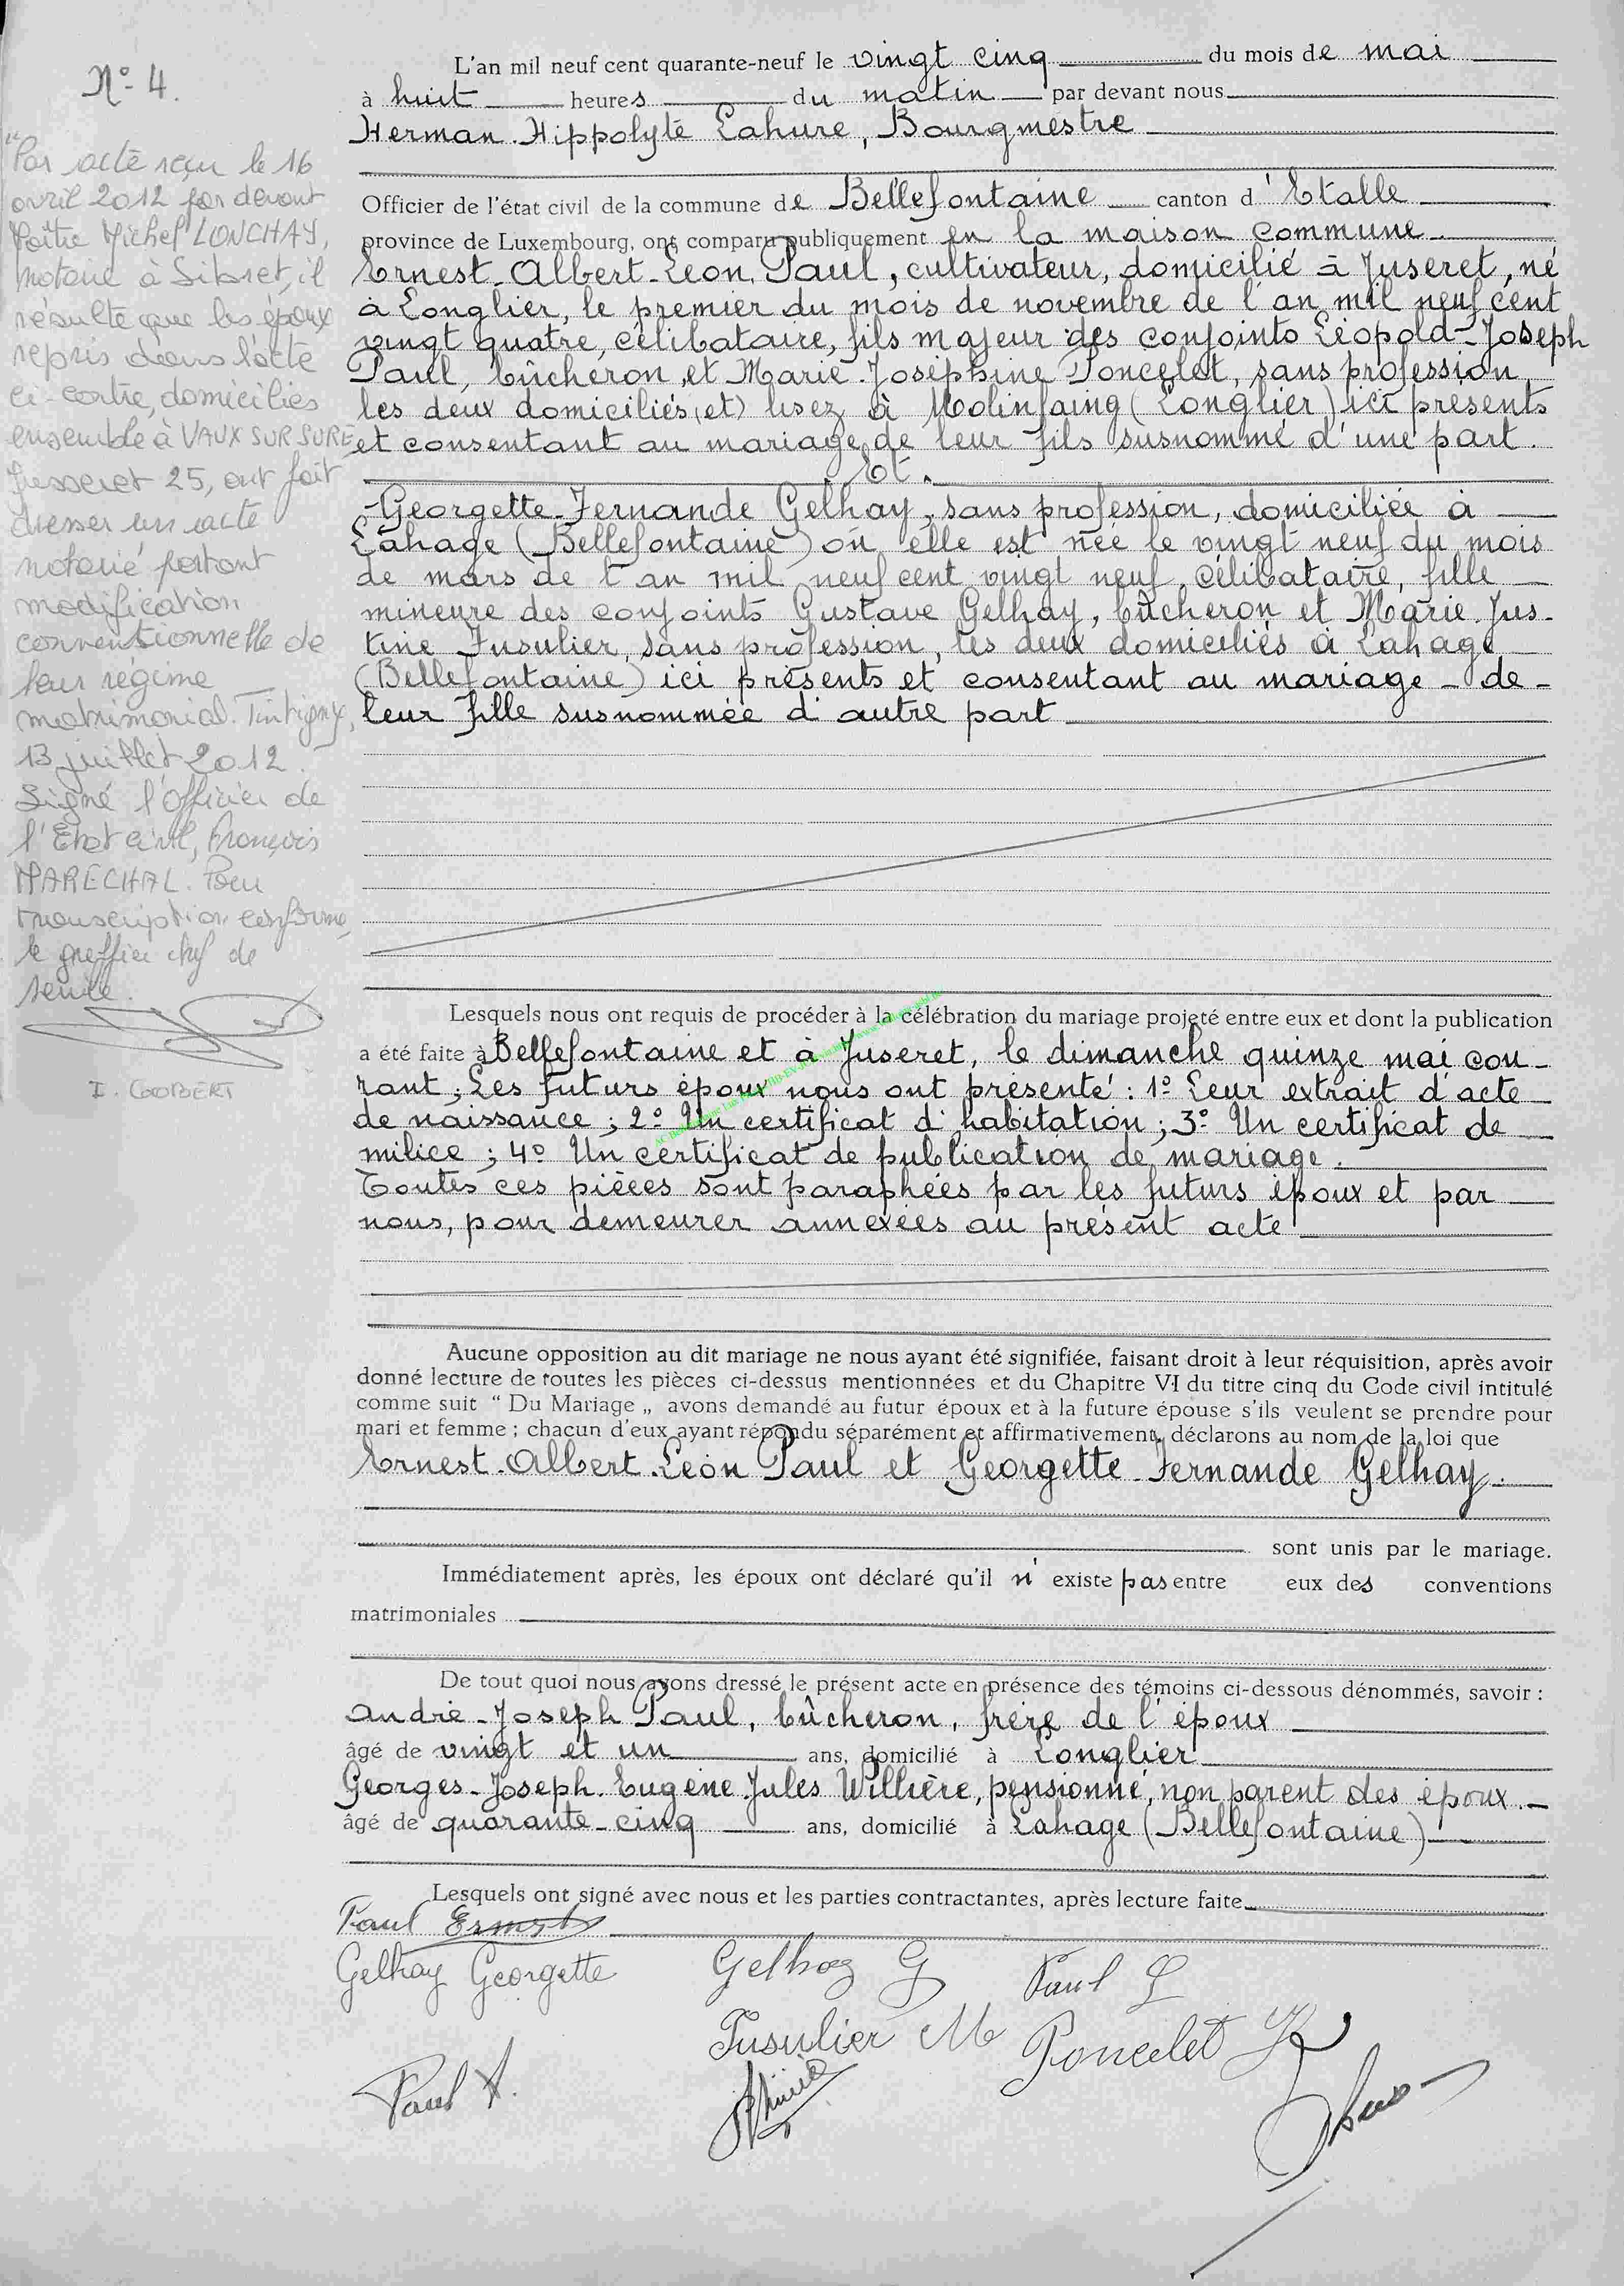 N° 4.
"Par acte reçu le 16
avril 2012 par devant
Maître Michel LONCHAY,
notaire à Sibret, il
résulte que les époux
repris dans l'acte
ci-contre, domiciliés
ensemble à VAUX SUR SURE
Jusseret 25, ont fait
dresser un acte
notarié portant
modification
conventionnelle de
leur régime
matrimonial. Tintigny,
13 juillet 2012.
Signé l'officier de
l'Etat civil, François
MARECHAL. Pour
transcription conforme,
le greffier chef de
service.
I. GOOBERT
L'an mil neuf cent quarante-neuf le vingt cinq du mois de mai
à huit heures du matin par devant nous
Herman-Hippolyte Lahure, Bourgmestre
Officier de l'état civil de la commune de Bellefontaine canton d'Etalle
province de Luxembourg, ont comparu publiquement en la maison commune.
Ernest-Albert-Léon Paul, cultivateur, domicilié à Juseret, né
à Longlier, le premier du mois de novembre de l'an mil neuf cent
vingt quatre, célibataire, fils majeur des conjoints Léopold-Joseph
Paul, bûcheron, et Marie-Joséphine Poncelet, sans profession,
les deux domiciliés (et) lisez à Molinfaing (Longlier) ici présents
et consentant au mariage de leur fils susnommé d'une part.
Et.
Georgette-Fernande Gelhay, sans profession, domiciliée à
Lahage (Bellefontaine) où elle est née le vingt neuf du mois
de mars de l'an mil neuf cent vingt neuf, célibataire, fille
mineure des conjoints Gustave Gelhay, bûcheron et Marie-Jus-
tine Fusulier, sans profession, les deux domiciliés à Lahage
(Bellefontaine) ici présents et consentant au mariage - de -
leur fille susnommée d'autre part
Lesquels nous ont requis de procéder à la célébration du mariage projeté entre eux et dont la publication
a été faite à Bellefontaine et à Juseret, le dimanche quinze mai cou-
rant; Les futurs époux nous ont présenté : 1° Leur extrait d'acte
de naissance ; 2° Un certificat d'habitation ; 3° Un certificat de
milice ; 4° Un certificat de publication de mariage.
Toutes ces pièces sont paraphées par les futurs époux et par
nous, pour demeurer annexées au présent acte
Aucune opposition au dit mariage ne nous ayant été signifiée, faisant droit à leur réquisition, après avoir
donné lecture de toutes les pièces ci-dessus mentionnées et du Chapitre VI du titre cinq du Code civil intitulé
comme suit " Du Mariage „ avons demandé au futur époux et à la future épouse s'ils veulent se prendre pour
mari et femme ; chacun d'eux ayant répondu séparément et affirmativement, déclarons au nom de la loi que
Ernest-Albert-Léon Paul et Georgette-Fernande Gelhay.
sont unis par le mariage.
Immédiatement après, les époux ont déclaré qu'il n'existe pas entre eux des conventions
matrimoniales
De tout quoi nous avons dressé le présent acte en présence des témoins ci-dessous dénommés, savoir :
André-Joseph Paul, bûcheron, frère de l'époux
âgé de vingt et un ans, domicilié à Longlier
Georges-Joseph-Eugène-Jules Willière, pensionné, non parent des époux.
âgé de quarante-cinq ans, domicilié à Lahage (Bellefontaine)
Lesquels ont signé avec nous et les parties contractantes, après lecture faite
Paul Ernest
Gelhay Georgette Gelhay G Paul L
Fusulier M Poncelet
Paul A.